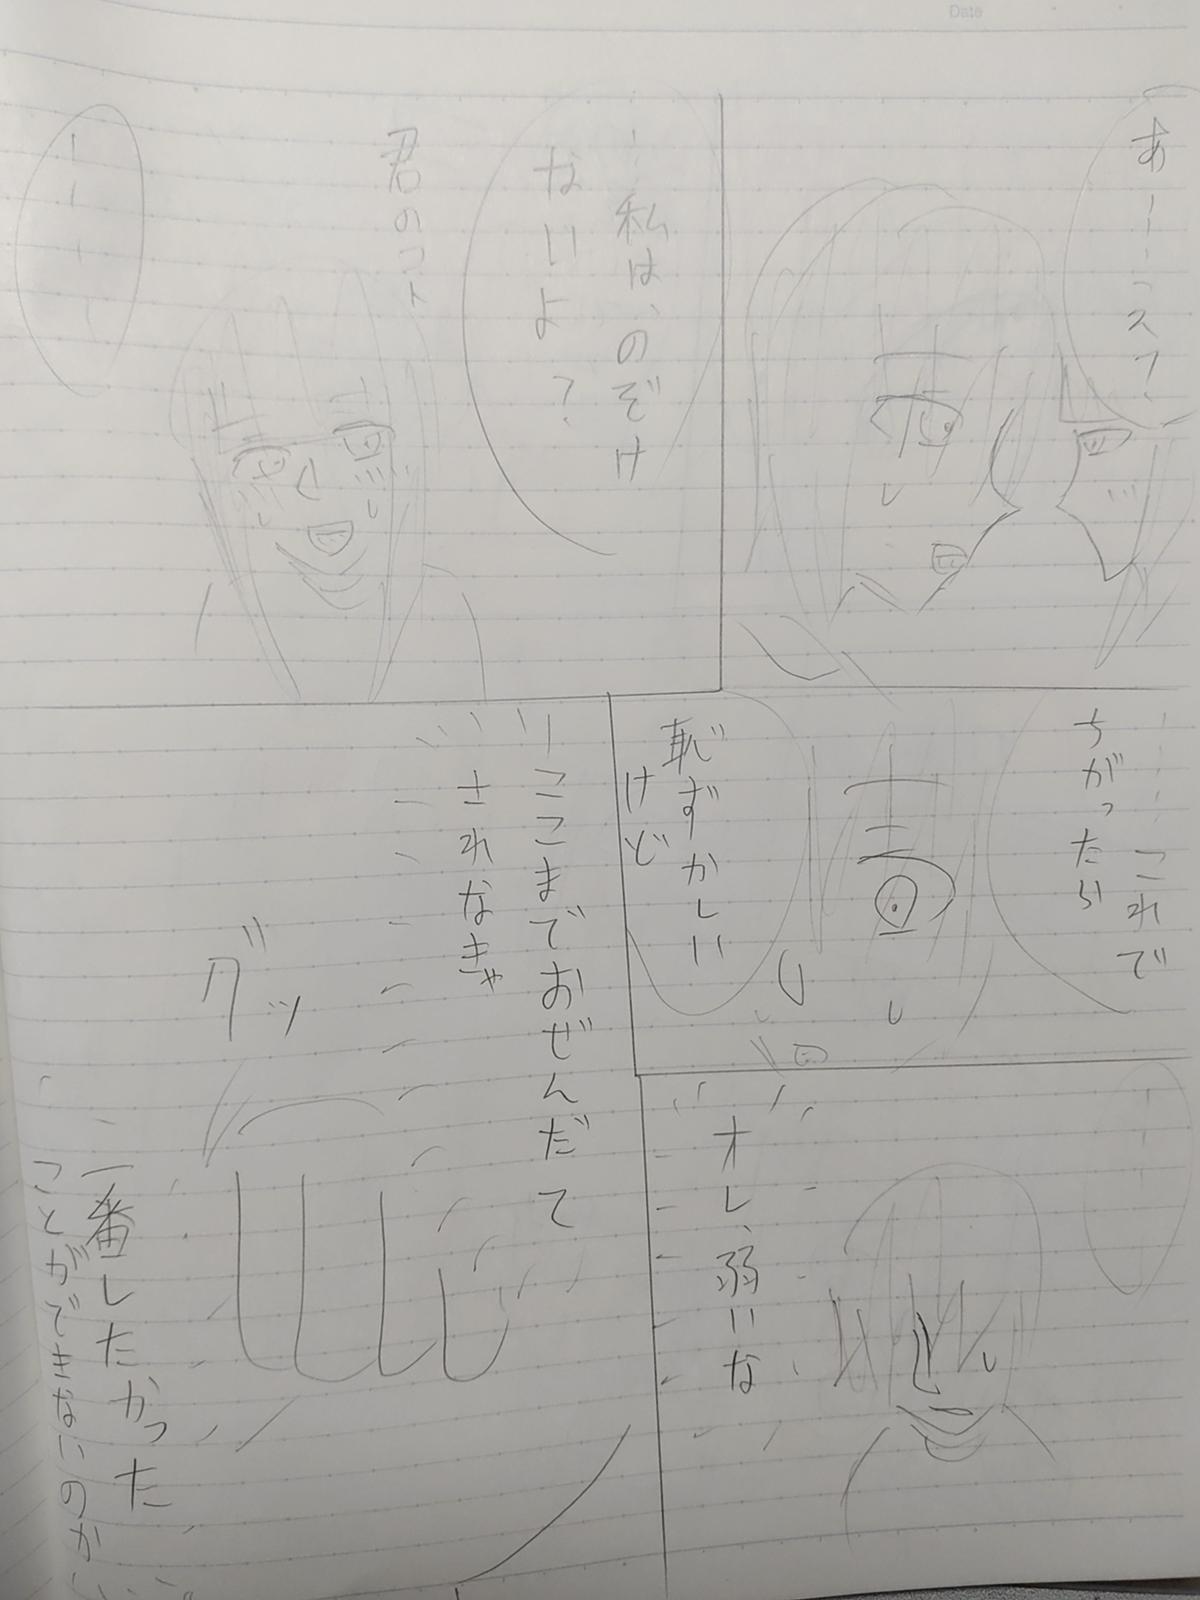 Date
あ……え？
…私は、のぞけ
ないよ？
君のコト
……
……これで
ちがったら
恥ずかしい
けど
……
オレ、弱いな
ここまでおぜんだて
されなきゃ
グッ
一番したかった
ことができないのか……